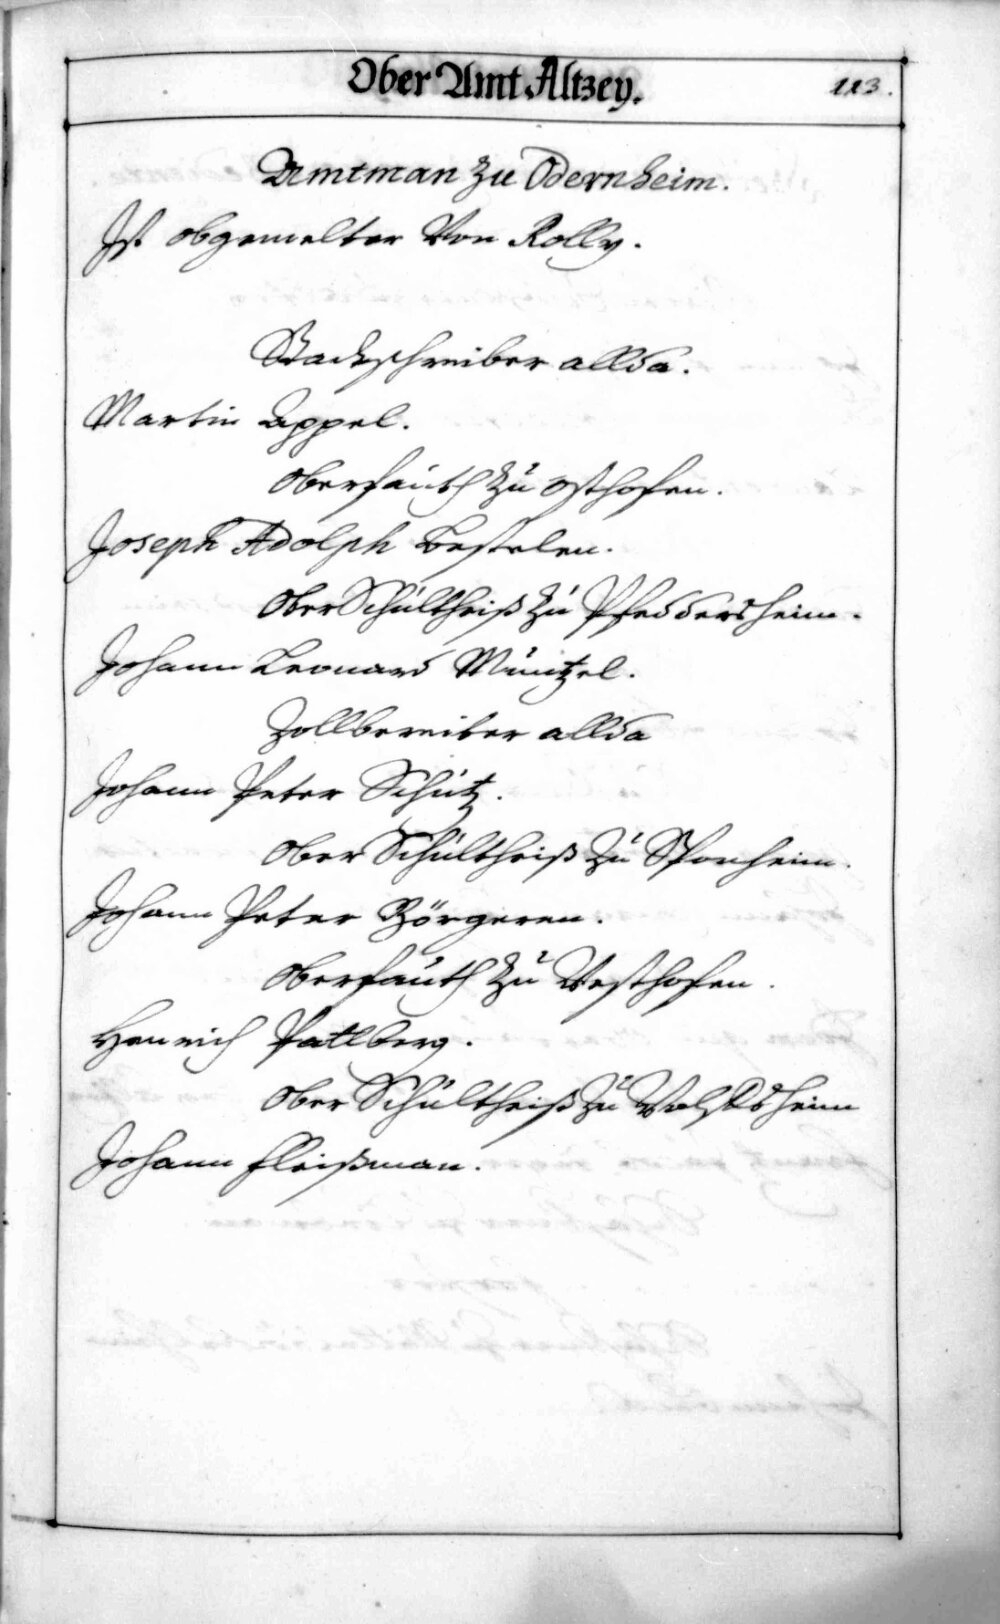 Ober Amt Altzey.
113.
Amtman zu Odernheim.
Ist obgemelter Von Rolly.
Stadtschreiber allda.
Martin Appel.
Oberfauth zu Osthofen.
Joseph Adolph
Ober Schültheiß zu Pfeddersheim.
Johann Leonard Müntzel.
Zollbereiter allda
Johann Peter Schütz.
Ober Schültheiß zu
Johann Peter Börgeren.
Oberfauth zu Westhofen.
Henrich Pattberg.
Ober Schültheiß zu
Johann Fleißman.